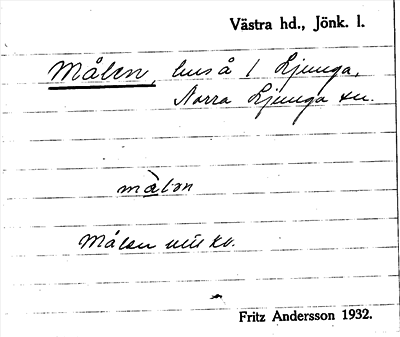 Västra hd., Jönk. l.
Målen, hus å 1 Ljunga,
Norra Ljunga sn.
målən
Målen
Fritz Andersson 1932.